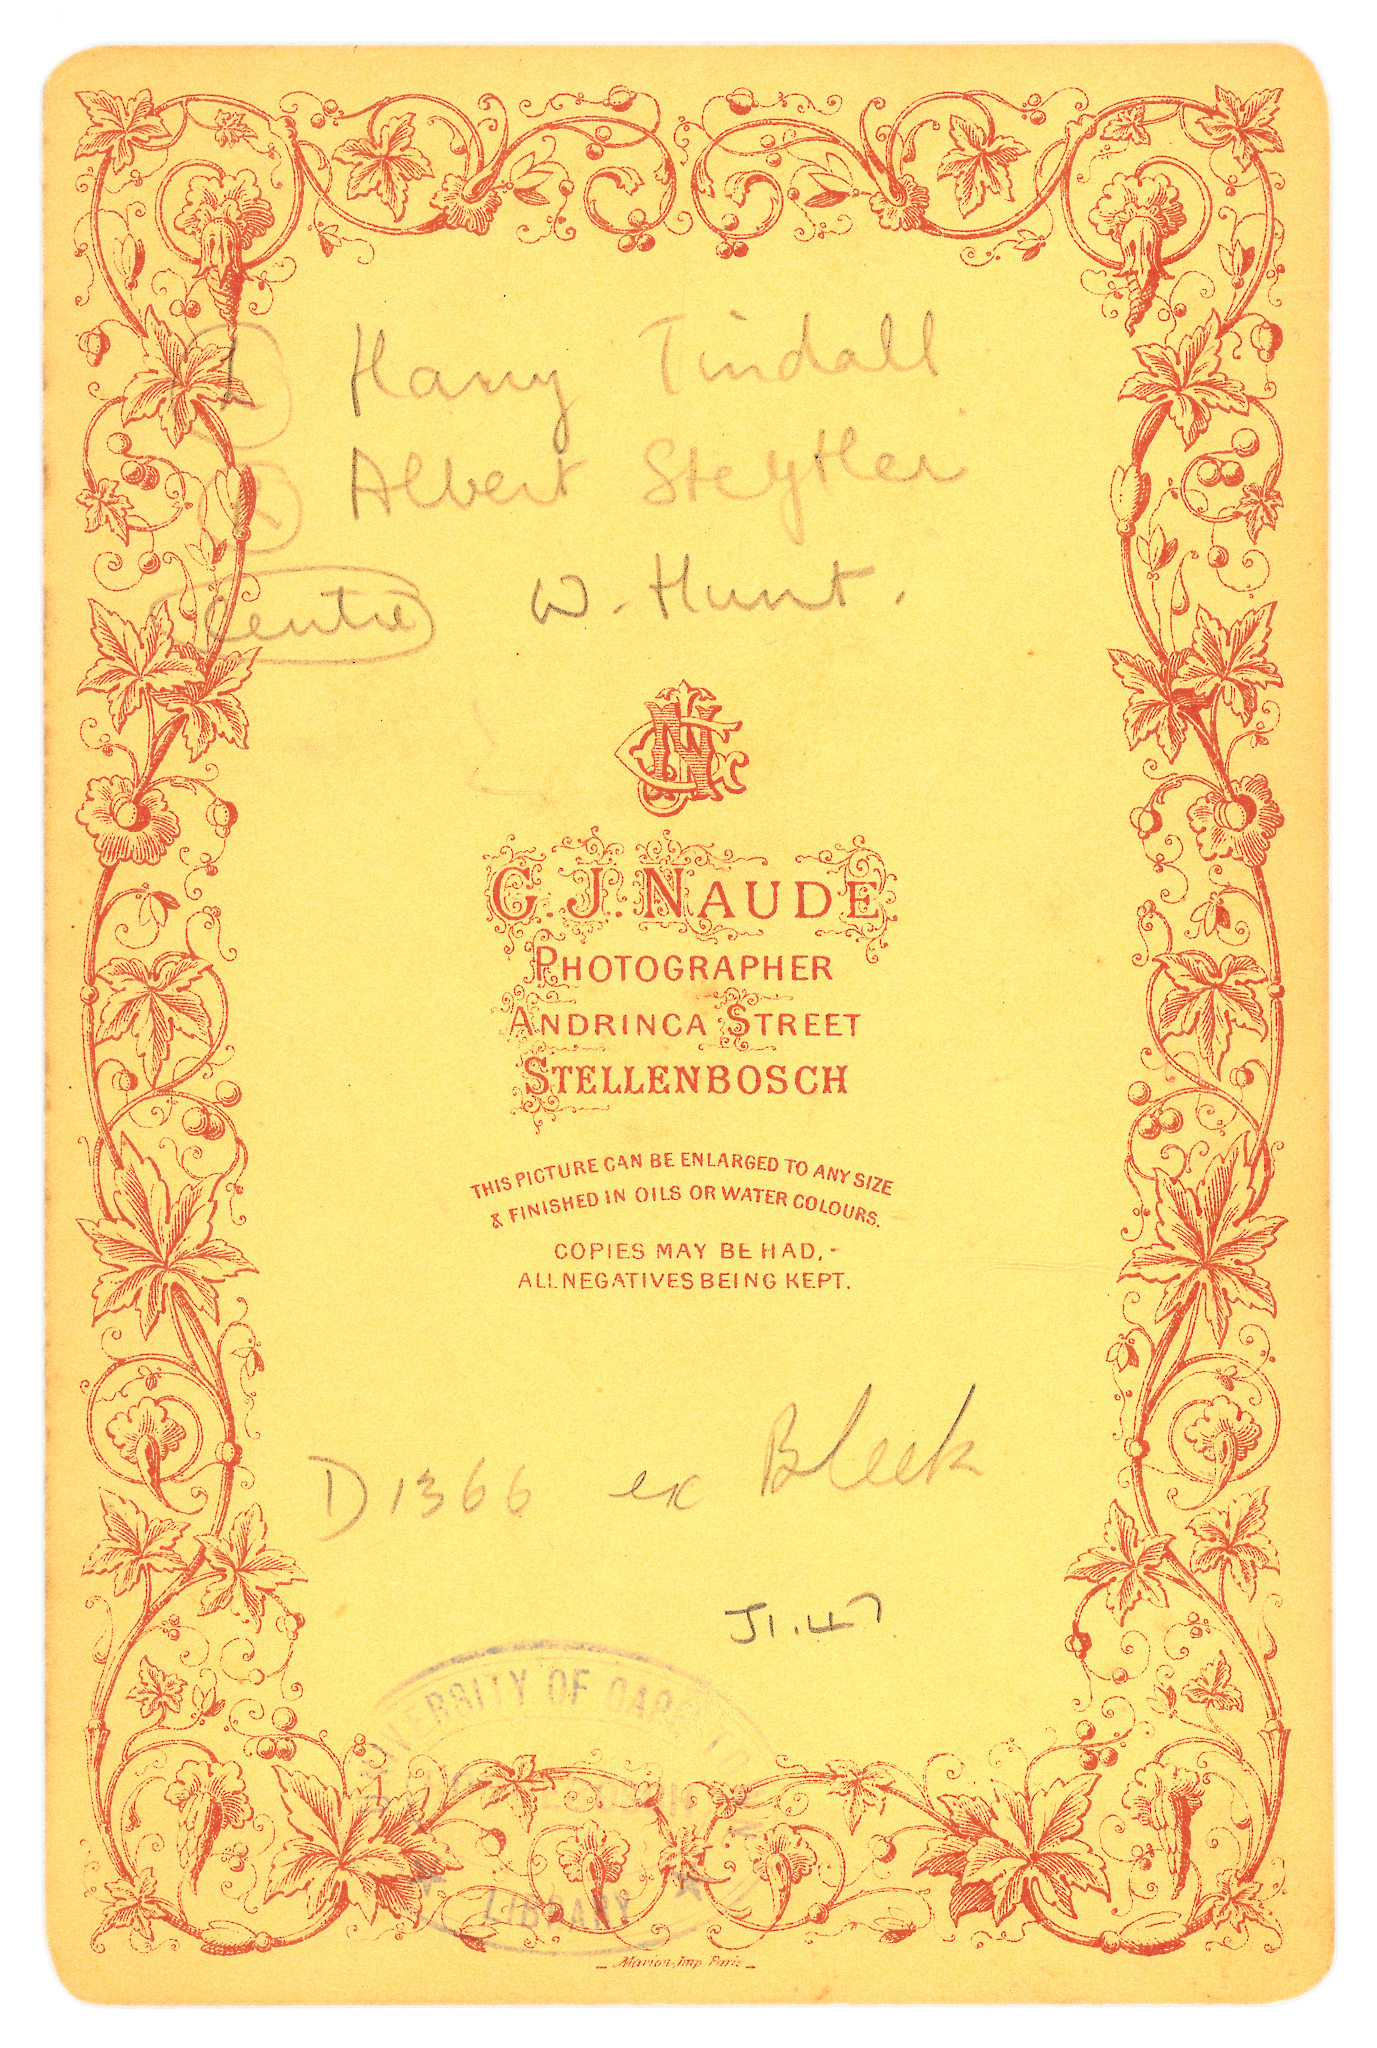 L Harry Tindall
R Albert Steytler
Centre W. Hunt.
CJN
C. J. NAUDE.
PHOTOGRAPHER
ANDRINCA STREET
STELLENBOSCH
THIS PICTURE CAN BE ENLARGED TO ANY SIZE
& FINISHED IN OILS OR WATER COLOURS.
COPIES MAY BE HAD,-
ALL NEGATIVES BEING KEPT.
D1366 ex Bleek
J1.47
UNIVERSITY OF CAPE TOWN
LIBRARY
Marion, Imp. Paris